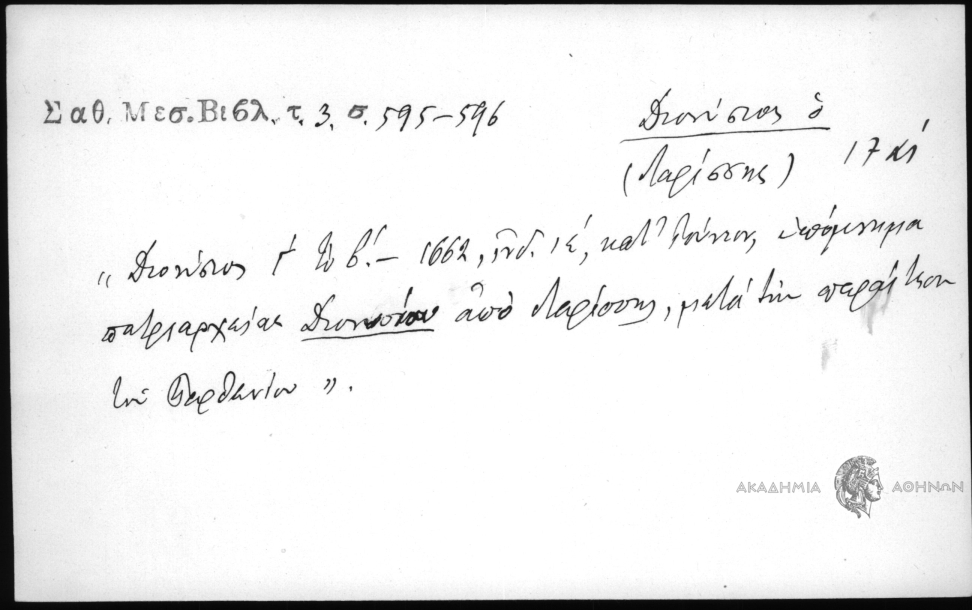 Σαθ. Μεσ. Βιβλ. τ. 3, σ. 595-596
Διονύσιος ὁ
(Λαρίσσης) 17
„ Διονύσιος τοῦ β΄. – 1662, ἰνδ. ιέ, κατ' Ἰούνιον, ὑπόμνημα
πατριαρχείας Διονυσίου ἀπὸ Λαρίσσης, μετὰ τὴν παραίτησιν
τοῦ Παρθενίου ”.
ΑΚΑΔΗΜΙΑ ΑΘΗΝΩΝ